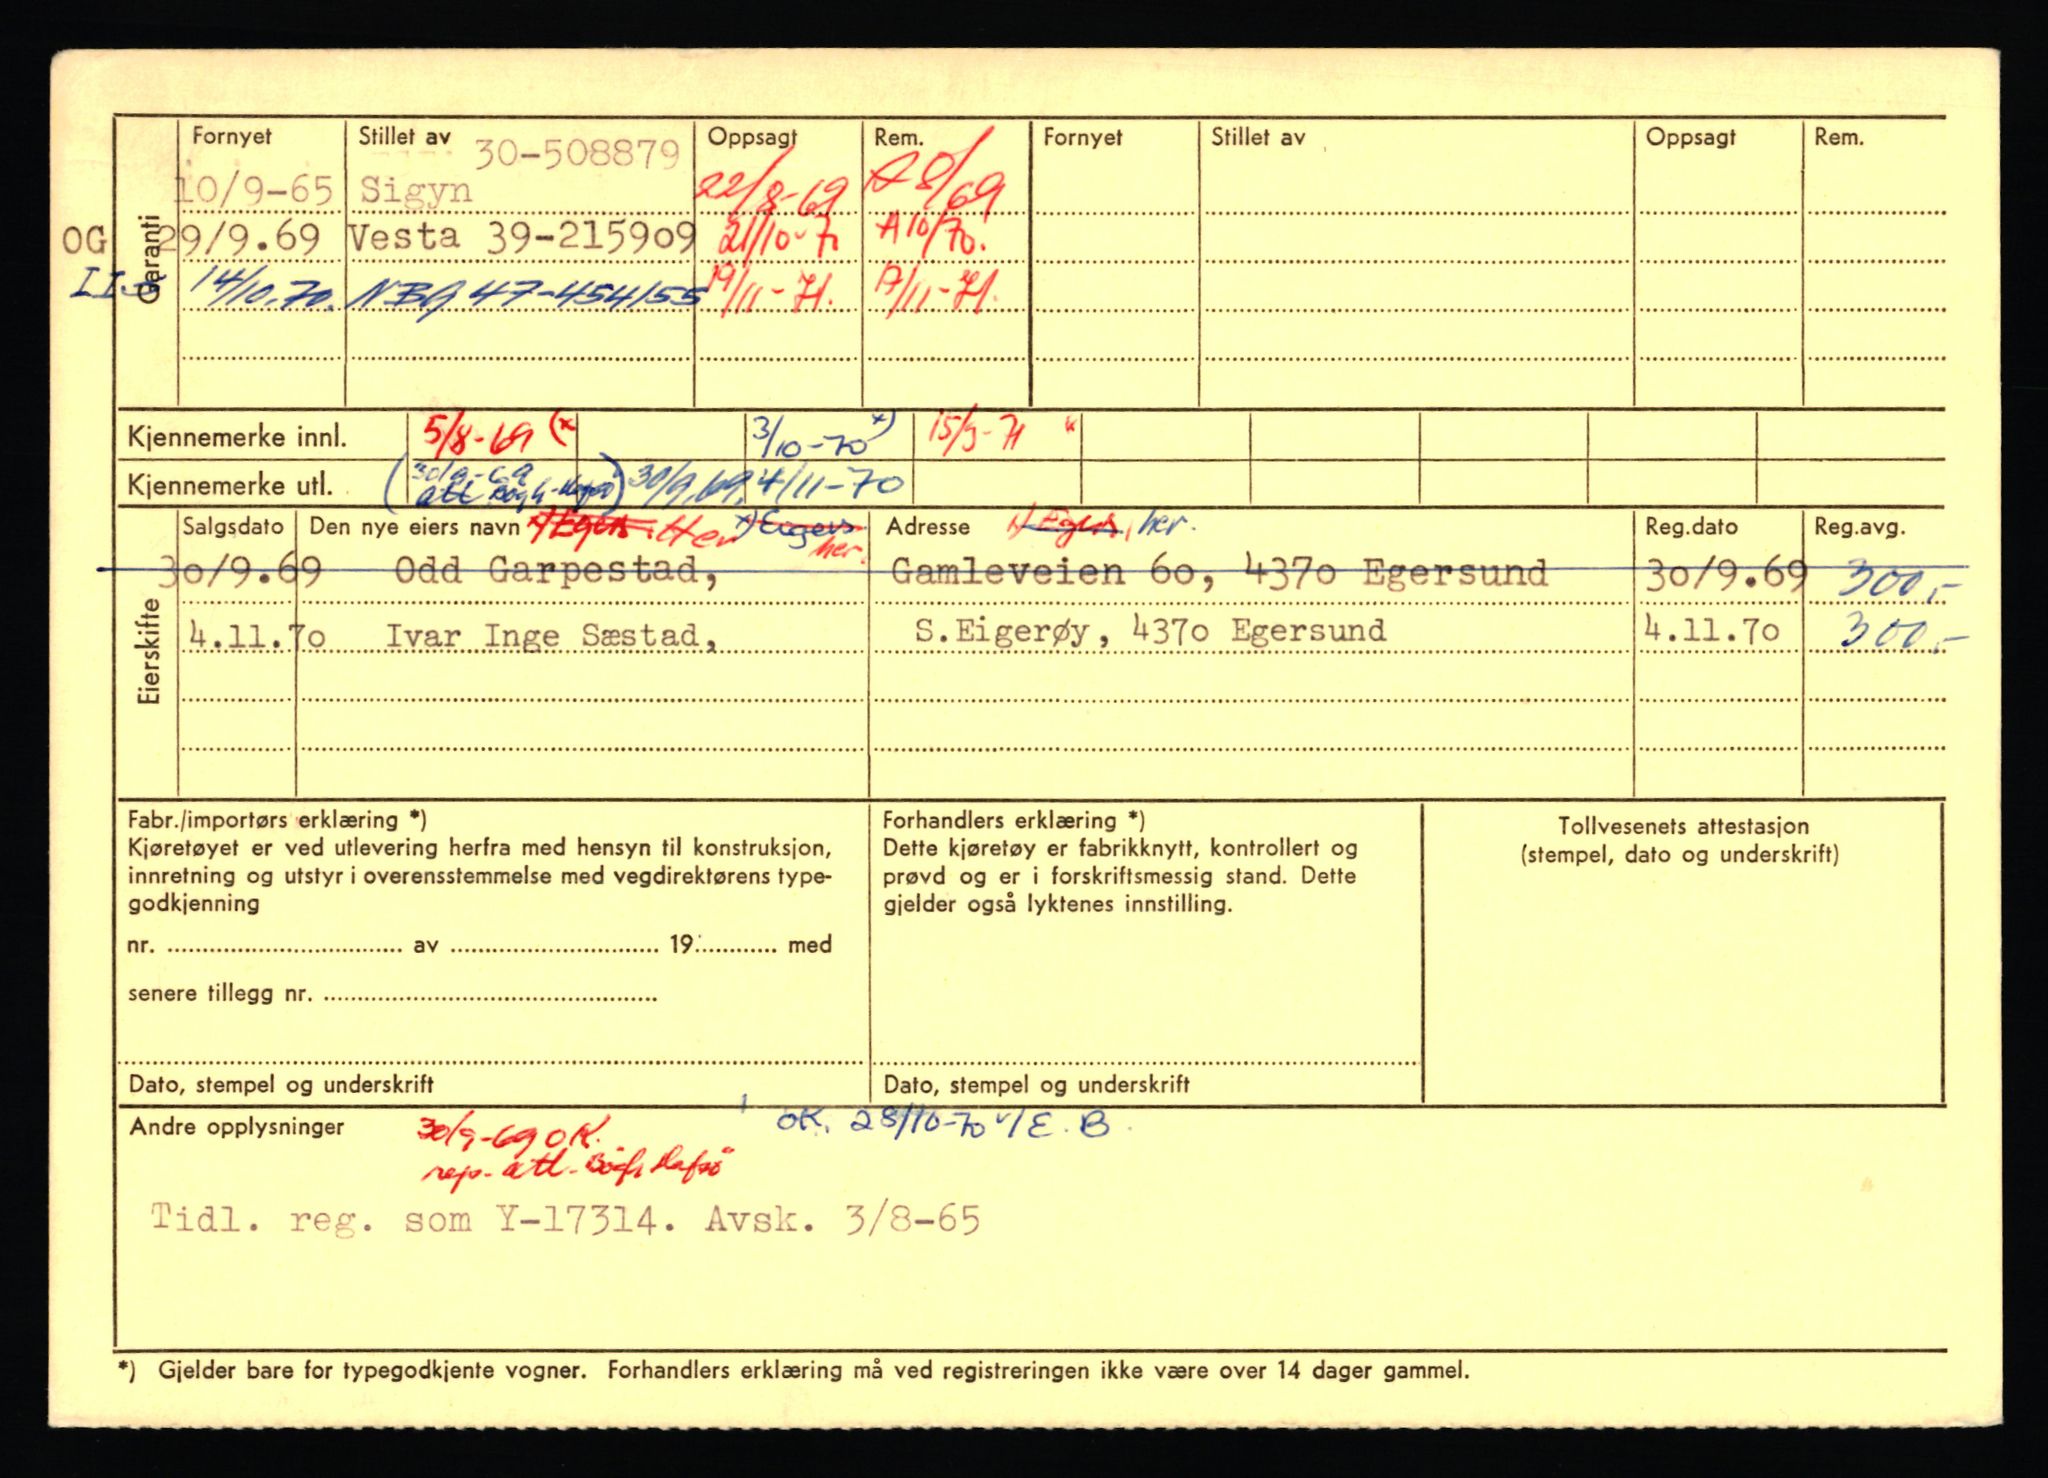 Fornyet Stillet av 30-508879 Oppsagt Rem. Fornyet Stillet av Oppsagt Rem.
10/9-65 Sigyn 22/8-69 A8/69
OG 29/9.69 Vesta 39-215909 21/10-7 A10/70.
14/10.70. 47-454155 19/11-71. 17/11-71.
Garanti
Kjennemerke innl. 5/8-69 (x 3/10-70 x) 15/9-71 x
Kjennemerke utl. (30/9-69 30/9.69. 4/11-70
att.
Salgsdato Den nye eiers navn x) Egers. Her x) Eigers her. Adresse x) Egers, her. Reg.dato Reg.avg.
30/9.69 Odd Garpestad, Gamleveien 60, 4370 Egersund 30/9.69 300,-
4.11.70 Ivar Inge Sæstad, S.Eigerøy, 4370 Egersund 4.11.70 300,-
Eierskifte
Fabr./importørs erklæring *)
Kjøretøyet er ved utlevering herfra med hensyn til konstruksjon,
innretning og utstyr i overensstemmelse med vegdirektørens type-
godkjenning
nr. av 19 med
senere tillegg nr.
Dato, stempel og underskrift
Forhandlers erklæring *)
Dette kjøretøy er fabrikknytt, kontrollert og
prøvd og er i forskriftsmessig stand. Dette
gjelder også lyktenes innstilling.
Dato, stempel og underskrift
Tollvesenets attestasjon
(stempel, dato og underskrift)
Andre opplysninger 30/9-69 OK. OK. 28/10-70 v/ E. B.
rep. att.
Tidl. reg. som Y-17314. Avsk. 3/8-65
*) Gjelder bare for typegodkjente vogner. Forhandlers erklæring må ved registreringen ikke være over 14 dager gammel.